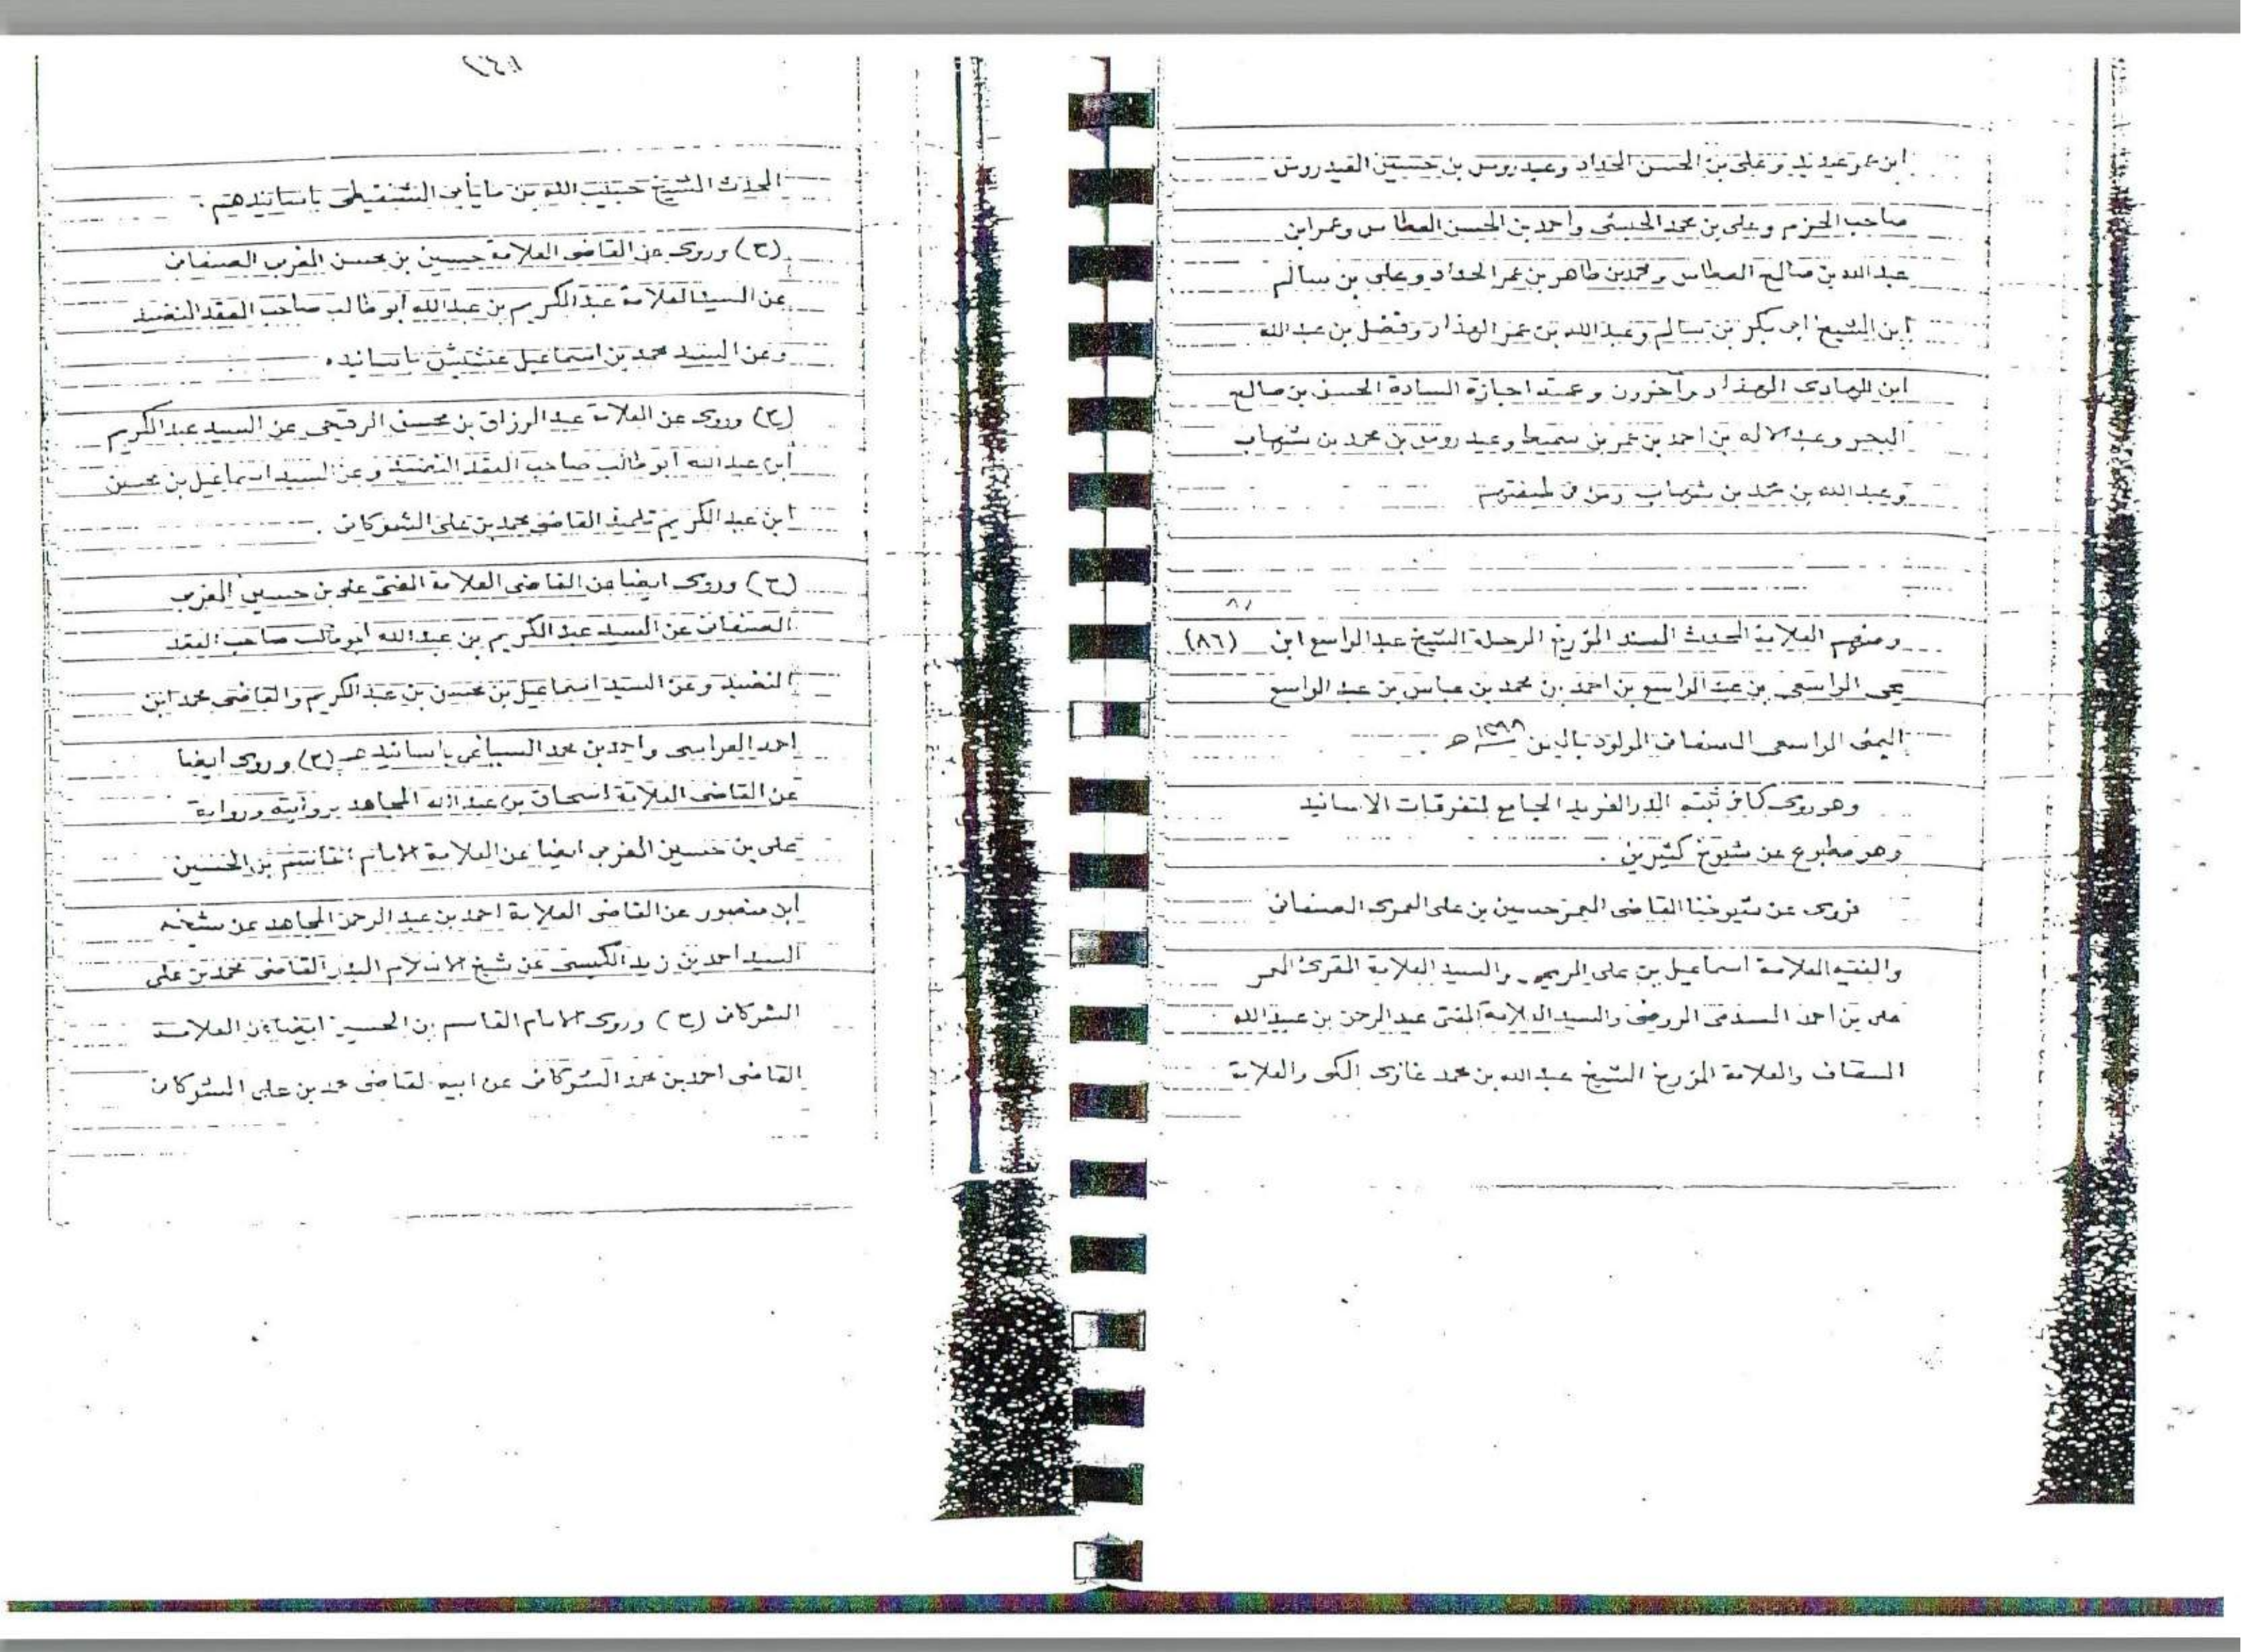 ابن عمر عيديد وعلى بن الحسن الحداد وعيدروس بن حسين العيدروس
صاحب الحزم وعلى بن محمد الحبشى وأحمد بن الحسن العطاس وعمر ابن
عبدالله بن صالح العطاس ومحمد بن طاهر بن عمر الحداد وعلى بن سالم
ابن الشيخ ابى بكر بن سالم وعبدالله بن عمر الهدار وفضل بن عبدالله
ابن الهادى الهدار وآخرون وعمته اجازة السادة الحسن بن صالح
البحر وعبدالاله بن احمد بن عمر بن سميط وعيدروس بن محمد بن شهاب
وعبدالله بن محمد بن شهاب ومن فى طبقتهم
ومنهم العلامة المحدث المسند المؤرخ الرحلة الشيخ عبدالواسع ابن (٨٦)
يحى الواسعى بن عبدالواسع بن احمد بن محمد بن عباس بن عبدالواسع
اليمنى الواسعى الصنعانى المولود باليمن هـ
وهو روى كما فى ثبته الدر الفريد الجامع لمتفرقات الاسانيد
وهو مطبوع عن شيوخ كثيرين .
فروى عن شيوخنا القاضى المعمر حسين بن على العمرى الصنعانى
والفقيه العلامة اسماعيل بن على الريمى والسيد العلامة المقرئ المعمر
على بن احمد السدمى الروضى والسيد العلامة المفتى عبدالرحمن بن عبدالله
السقاف والعلامة المؤرخ الشيخ عبدالله بن محمد غازى المكى والعلامة
المحدث الشيخ حبيب الله بن مايأبى الشنقيطى باسانيدهم .
(ح) وروى عن القاضى العلامة حسين بن محسن المغربى الصنعانى
عن السيد العلامة عبدالكريم بن عبدالله أبو طالب صاحب العقد النضيد
وعن السيد محمد بن اسماعيل عشيش باسانيده
(ح) وروى عن العلامة عبدالرزاق بن محسن الرقيحى عن السيد عبدالكريم
ابن عبدالله أبو طالب صاحب العقد النضيد وعن السيد اسماعيل بن محسن
ابن عبدالكريم تلميذ القاضى محمد بن على الشوكانى .
(ح) وروى ايضا عن القاضى العلامة المفتى على بن حسين المغربى
الصنعانى عن السيد عبدالكريم بن عبدالله أبو طالب صاحب العقد
النضيد وعن السيد اسماعيل بن محسن بن عبدالكريم والقاضى محمد ابن
احمد العراسى واحمد بن محمد السياغى باسانيدهم (ح) وروى ايضا
عن القاضى العلامة اسحاق بن عبدالله المجاهد بروايته ورواية
على بن حسين المغربى ايضا عن العلامة الامام القاسم بن الحسين
ابن منصور عن القاضى العلامة احمد بن عبدالرحمن المجاهد عن شيخه
السيد احمد بن زيد الكبسى عن شيخ الاسلام البدر القاضى محمد بن على
الشوكانى (ح) وروى الامام القاسم بن الحسين ايضا عن العلامة
القاضى احمد بن محمد الشوكانى عن ابيه القاضى محمد بن على الشوكانى